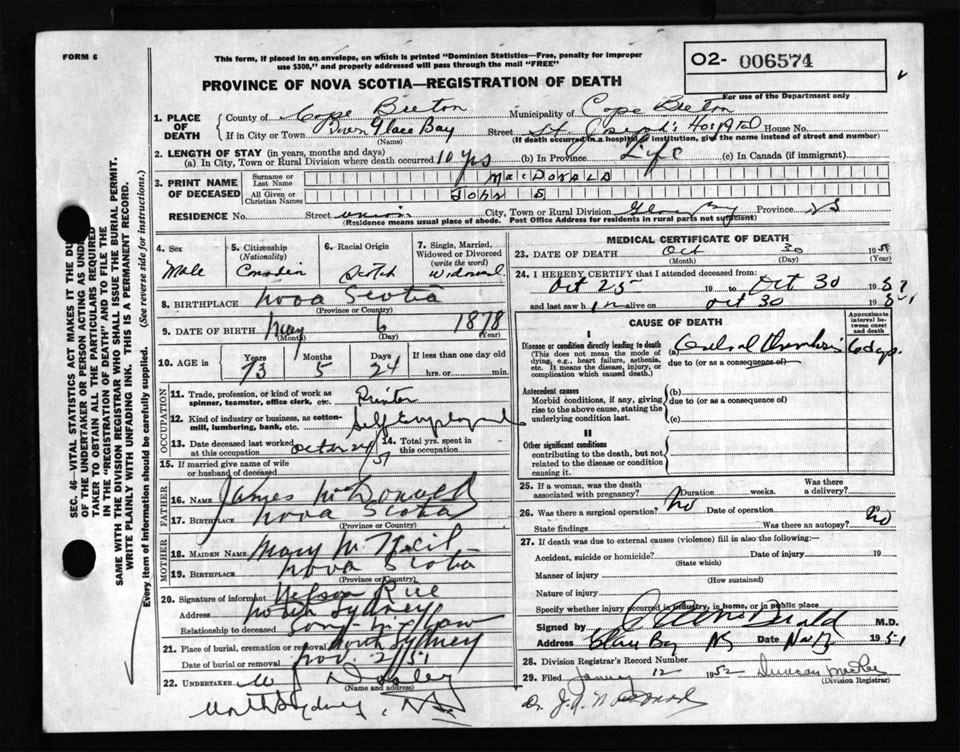 FORM 6
This form, if placed in an envelope, on which is printed "Dominion Statistics—Free, penalty for improper
use $300," and properly addressed will pass through the mail "FREE"
02- 006574
For use of the Department only
PROVINCE OF NOVA SCOTIA—REGISTRATION OF DEATH
1. PLACE OF DEATH
County of Cape Breton Municipality of Cape Breton
If in City or Town Town Glace Bay Street St. Joseph's Hospital House No.
(Name) (If death occurred in a hospital or institution, give the name instead of street and number)
2. LENGTH OF STAY (in years, months and days)
(a) In City, Town or Rural Division where death occurred 10 yrs (b) In Province Life (c) In Canada (if immigrant)
3. PRINT NAME OF DECEASED
Surname or Last Name MacDonald
All Given or Christian Names John
RESIDENCE No. Street Union City, Town or Rural Division Glace Bay Province NS
(Residence means usual place of abode. Post Office Address for residents in rural parts not sufficient)
4. Sex Male
5. Citizenship (Nationality) Canadin
6. Racial Origin Scotch
7. Single, Married, Widowed or Divorced (write the word) Widowed
8. BIRTHPLACE Nova Scotia
(Province or Country)
9. DATE OF BIRTH May 6 1878
(Month) (Day) (Year)
10. AGE in Years 73 Months 5 Days 24 If less than one day old hrs. or min.
OCCUPATION
11. Trade, profession, or kind of work as spinner, teamster, office clerk, etc. Printer
12. Kind of industry or business, as cotton-mill, lumbering, bank, etc. Self Employed
13. Date deceased last worked at this occupation 51
14. Total yrs. spent in this occupation
15. If married give name of wife or husband of deceased
FATHER
16. NAME James McDonald
17. BIRTHPLACE Nova Scotia
(Province or Country)
MOTHER
18. MAIDEN NAME Mary McNeil
19. BIRTHPLACE Nova Scotia
(Province or Country)
20. Signature of informant Nelson Rice
Address North Sydney
Relationship to deceased Son-in-law
21. Place of burial, cremation or removal North Sydney
Date of burial or removal Nov. 2/51
22. UNDERTAKER W J Dooley
(Name and address)
North Sydney, N.S.
MEDICAL CERTIFICATE OF DEATH
23. DATE OF DEATH Oct 30 195
(Month) (Day) (Year)
24. I HEREBY CERTIFY that I attended deceased from:
Oct 25 19 to Oct 30 1951
and last saw him alive on Oct 30 1951
CAUSE OF DEATH
Approximate interval between onset and death
I
Disease or condition directly leading to death
(This does not mean the mode of dying, e.g., heart failure, asthenia, etc. It means the disease, injury, or complication which caused death.)
(a) Cerebral Thrombosis 6 days.
due to (or as a consequence of)
Antecedent causes
Morbid conditions, if any, giving rise to the above cause, stating the underlying condition last.
(b)
due to (or as a consequence of)
(c)
II
Other significant conditions
contributing to the death, but not related to the disease or condition causing it.
25. If a woman, was the death associated with pregnancy? Duration weeks. Was there a delivery?
26. Was there a surgical operation? No Date of operation
State findings Was there an autopsy? No
27. If death was due to external causes (violence) fill in also the following:—
Accident, suicide or homicide? Date of injury 19
(State which)
Manner of injury
(How sustained)
Nature of injury
Specify whether injury occurred in industry, in home, or in public place
Signed by M.D.
Address Glace Bay NS Date 1951
28. Division Registrar's Record Number
29. Filed January 12 1952 Duncan MacRae
(Division Registrar)
Dr. J.A. McDonald
SEC. 46—VITAL STATISTICS ACT MAKES IT THE DU
OF THE UNDERTAKER OR PERSON ACTING AS UND
TAKER TO OBTAIN ALL THE PARTICULARS REQUIRED
IN THE "REGISTRATION OF DEATH" AND TO FILE THE
SAME WITH THE DIVISION REGISTRAR WHO SHALL ISSUE THE BURIAL PERMIT.
WRITE PLAINLY WITH UNFADING INK. THIS IS A PERMANENT RECORD.
Every item of information should be carefully supplied. (See reverse side for instructions.)